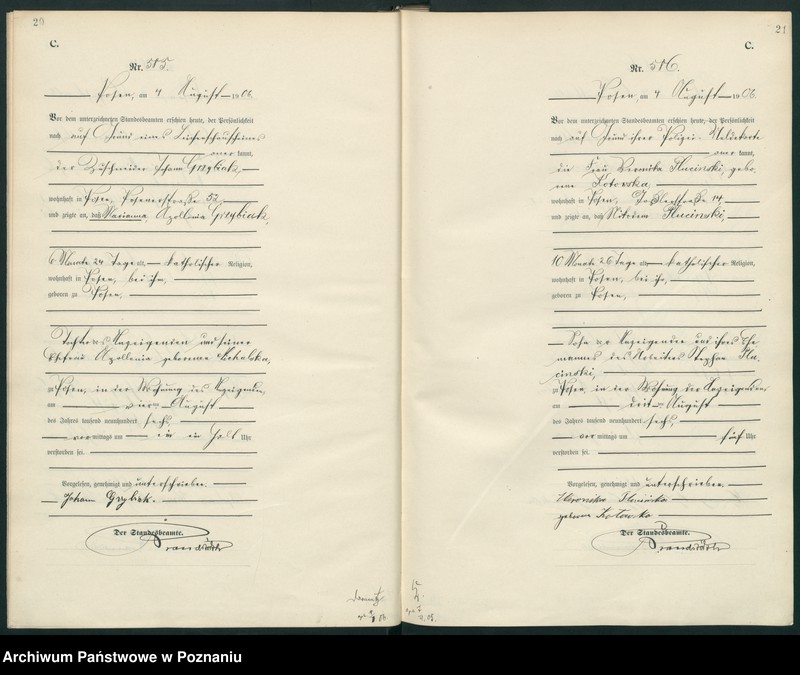 20
C.
Nr. 515.
Posen, am 4 August 1906.
Vor dem unterzeichneten Standesbeamten erschien heute, der Persönlichkeit
nach auf Grund eines Leichenschauscheines
kannt,
der Zuschneider Johann Grzybiak,
wohnhaft in Posen, Posenerstraße 52,
und zeigte an, daß Marianna, Apollonia Grzybiak,
6 Monate 24 Tage alt, katholischer Religion,
wohnhaft in Posen, bei ihm,
geboren zu Posen,
Tochter des Anzeigenden und seiner
Ehefrau Apollonia geborene
zu Posen, in der Wohnung des Anzeigenden
am vier August
des Jahres tausend neunhundert sechs
vor mittags um ein ein halb Uhr
verstorben sei.
Vorgelesen, genehmigt und unterschrieben.
Johann Grzybiak.
Der Standesbeamte.
21
C.
Nr. 516.
Posen, am 4 August 1906
Vor dem unterzeichneten Standesbeamten erschien heute, der Persönlichkeit
nach auf Grund ihrer Polizei-Meldekarte
kannt,
die Frau Veronika Tlucinski, gebo-
rene Kotowska,
wohnhaft in Posen, 14
und zeigte an, daß Nikodem Tlucinski,
10 Monate 26 Tage alt, katholischer Religion,
wohnhaft in Posen, bei ihr,
geboren zu Posen,
Sohn der Anzeigenden und ihres Ehe-
mannes des Arbeiters Stephan Tlu-
cinski,
zu Posen, in der Wohnung der Anzeigenden
am drei August
des Jahres tausend neunhundert sechs,
vor mittags um fünf Uhr
verstorben sei.
Vorgelesen, genehmigt und unterschrieben.
geborene Kotowska
Der Standesbeamte.
Archiwum Państwowe w Poznaniu